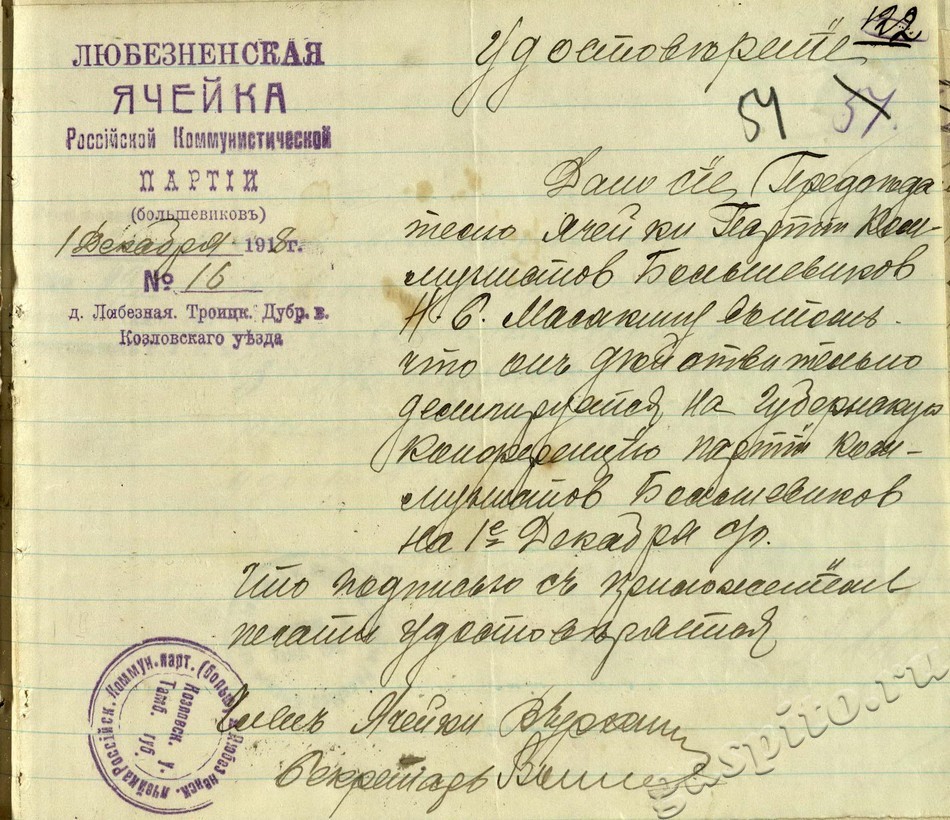 ЛЮБЕЗНЕНСКАЯ
ЯЧЕЙКА
Россійской Коммунистической
ПАРТІИ
(большевиковъ)
1 Декабря 1918 г.
№ 16
д. Любезная. Троицк. Дубр. в.
Козловскаго уѣзда
122
Удостовѣреніе
51 57.
Дано сіе Предсѣда-
телю Ячейки Партіи Ком-
мунистов Большевиков
Н. С. Масякину въ томъ
что онъ дѣйствительно
делигируется на Губернскую
Конференцію партіи Ком-
мунистов Большевиков
на 1е Декабря с/г.
Что подписью съ приложеніем
печати удостовѣряется
Членъ Ячейки
Секретарь
Россійск. Коммун. парт. (больш.) Любезненск. ячейка
Козловск. у.
Тамб. губ.
gaspito.ru